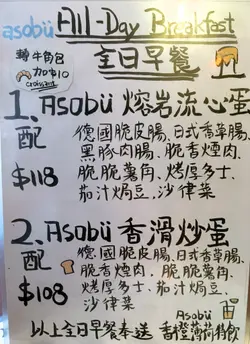 asobü All-Day Breakfast
全日早餐
轉牛角包
加$10
croissant
1、Asobü 熔岩流心蛋
配 德國脆皮腸、日式香草腸、
黑豚肉腸、脆香煙肉、
$118 脆脆薯角、烤厚多士、
茄汁焗豆、沙律菜
2、Asobü 香滑炒蛋
配 德國脆皮腸、日式香草腸、
脆香煙肉、脆脆薯角、
$108 烤厚多士、茄汁焗豆、
沙律菜
Asobü
以上全日早餐奉送 香橙薄荷特飲